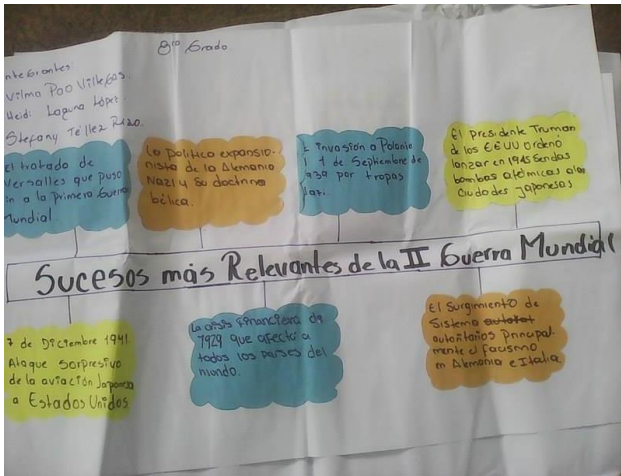 8vo Grado
ntegrantes
Vilma Poo Villegas.
Heidi Laguna López.
Stefany Téllez Rizo.
el tratado de
Versalles que puso
in a la primera Guerra
Mundial.
La política expansio-
nista de la Alemania
Nazi y su doctrina
bélica.
invasión a Polonia
1 de Septiembre de
por tropas
El presidente Truman
de los EEUU ordenó
lanzar en 1945 sendas
bombas atómicas a las
Ciudades japonesas
Sucesos más Relevantes de la II Guerra Mundial
7 de Diciembre 1941
Ataque sorpresivo
de la aviación Japonesa
a Estados Unidos
La crisis financiera de
1929 que afectó a
todos los países del
mundo.
El Surgimiento de
Sistema
autoritarios principal-
mente el facismo
en Alemania e Italia.